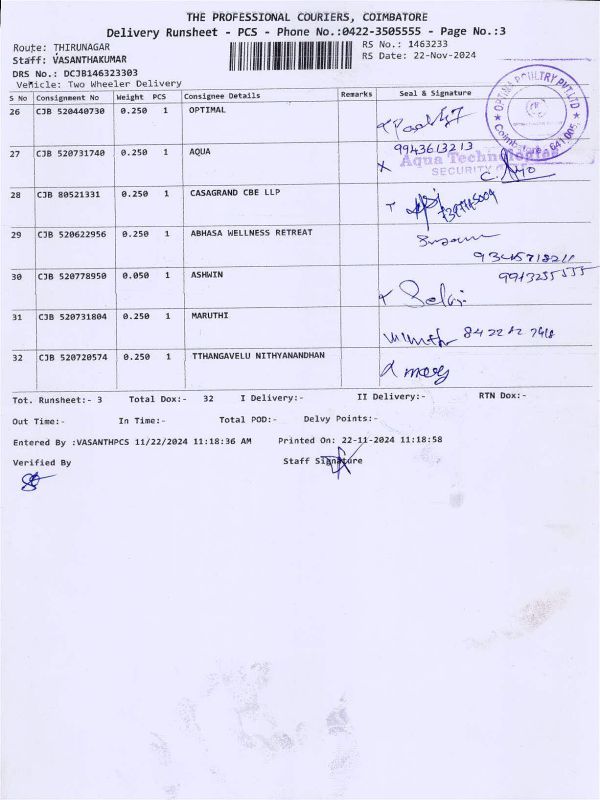 THE PROFESSIONAL COURIERS, COIMBATORE
Delivery Runsheet - PCS - Phone No.:0422-3505555 - Page No.:3
Route: THIRUNAGAR
RS No.: 1463233
Staff: VASANTHAKUMAR
RS Date: 22-Nov-2024
DRS No.: DCJB146323303
Vehicle: Two Wheeler Delivery
S No Consignment No Weight PCS Consignee Details Remarks Seal & Signature
26 CJB 520440730 0.250 1 OPTIMAL
OPTIMA POULTRY PVT LTD
Coimbatore - 641 005.
27 CJB 520731740 0.250 1 AQUA 9943613213
Aqua Technologies
SECURITY
28 CJB 80521331 0.250 1 CASAGRAND CBE LLP
29 CJB 520622956 0.250 1 ABHASA WELLNESS RETREAT
30 CJB 520778950 0.050 1 ASHWIN
31 CJB 520731804 0.250 1 MARUTHI
32 CJB 520720574 0.250 1 TTHANGAVELU NITHYANANDHAN
Tot. Runsheet:- 3 Total Dox:- 32 I Delivery:- II Delivery:- RTN Dox:-
Out Time:- In Time:- Total POD:- Delvy Points:-
Entered By :VASANTHPCS 11/22/2024 11:18:36 AM Printed On: 22-11-2024 11:18:58
Verified By Staff Signature